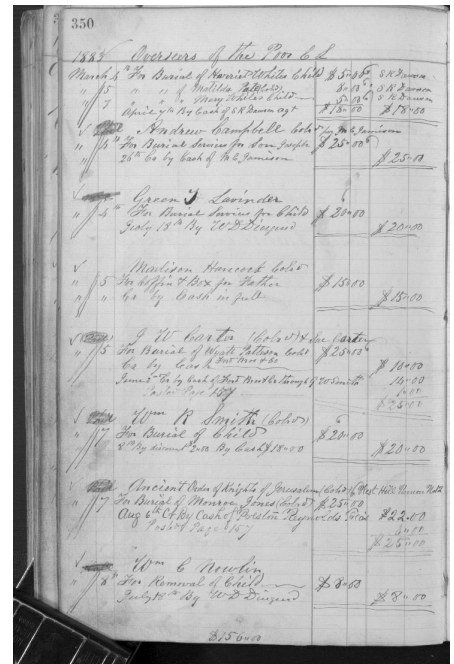 350
1883 Overseers of the Poor C S
March 4th For Burial of Harriet Whites Child $5.00 S K Dawson
" 5 " " of Matilda S K Dawson
" 7 " " " Mary Whites Child S K Dawson
April 7th By Cash of S K Dawson agt $18.00 $18.00
Andrew Campbell Cold for M C Jamison
" 4th For Burial Services for Son Joseph $25.00
26th Cr by Cash of M C Jamison $25.00
Green T Lavinder
" 4th For Burial Services for Child $20.00
July 18th By W D $20.00
Madison Hancock Cold
" 5 For Coffin & Box for Father $15.00
" " Cr by Cash in full $15.00
J W Carter (Cold) & Sue Carter
" 5 For Burial of Wyatt Patterson Cold $25.00
Cr by Cash $10.00
June 2nd Cr by Cash of through 14.00
Page 157 1.00
$25.00
Wm R Smith (Cold)
" 7 For Burial of Child $20.00
8th By discount 2.00 By Cash $18.00 $20.00
Ancient Order of Knights of Jerusalem (Cold)
" 7 For Burial of Monroe Jones (Cold) $25.00
Aug 6th Cr By Cash of Preston Reynolds $22.00
Page 157 3.00
$25.00
Wm C Nowlin
" 8th For Removal of Child $8.00
July 18th By W D $8.00
$156.00